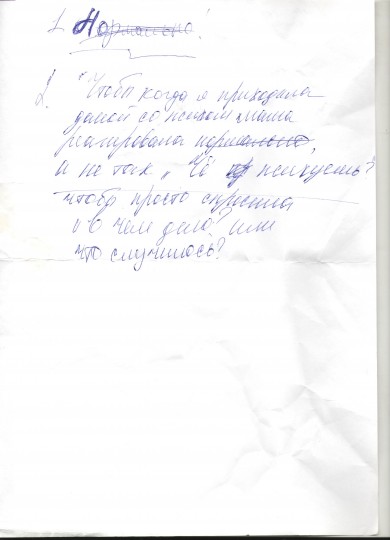 1. Нормально!
2. "Чтобы когда я приходила
домой со психом мама
реагировала нормально,
а не так „Чё психуешь?
чтобы просто спросила
в чем дело? или
что случилось?